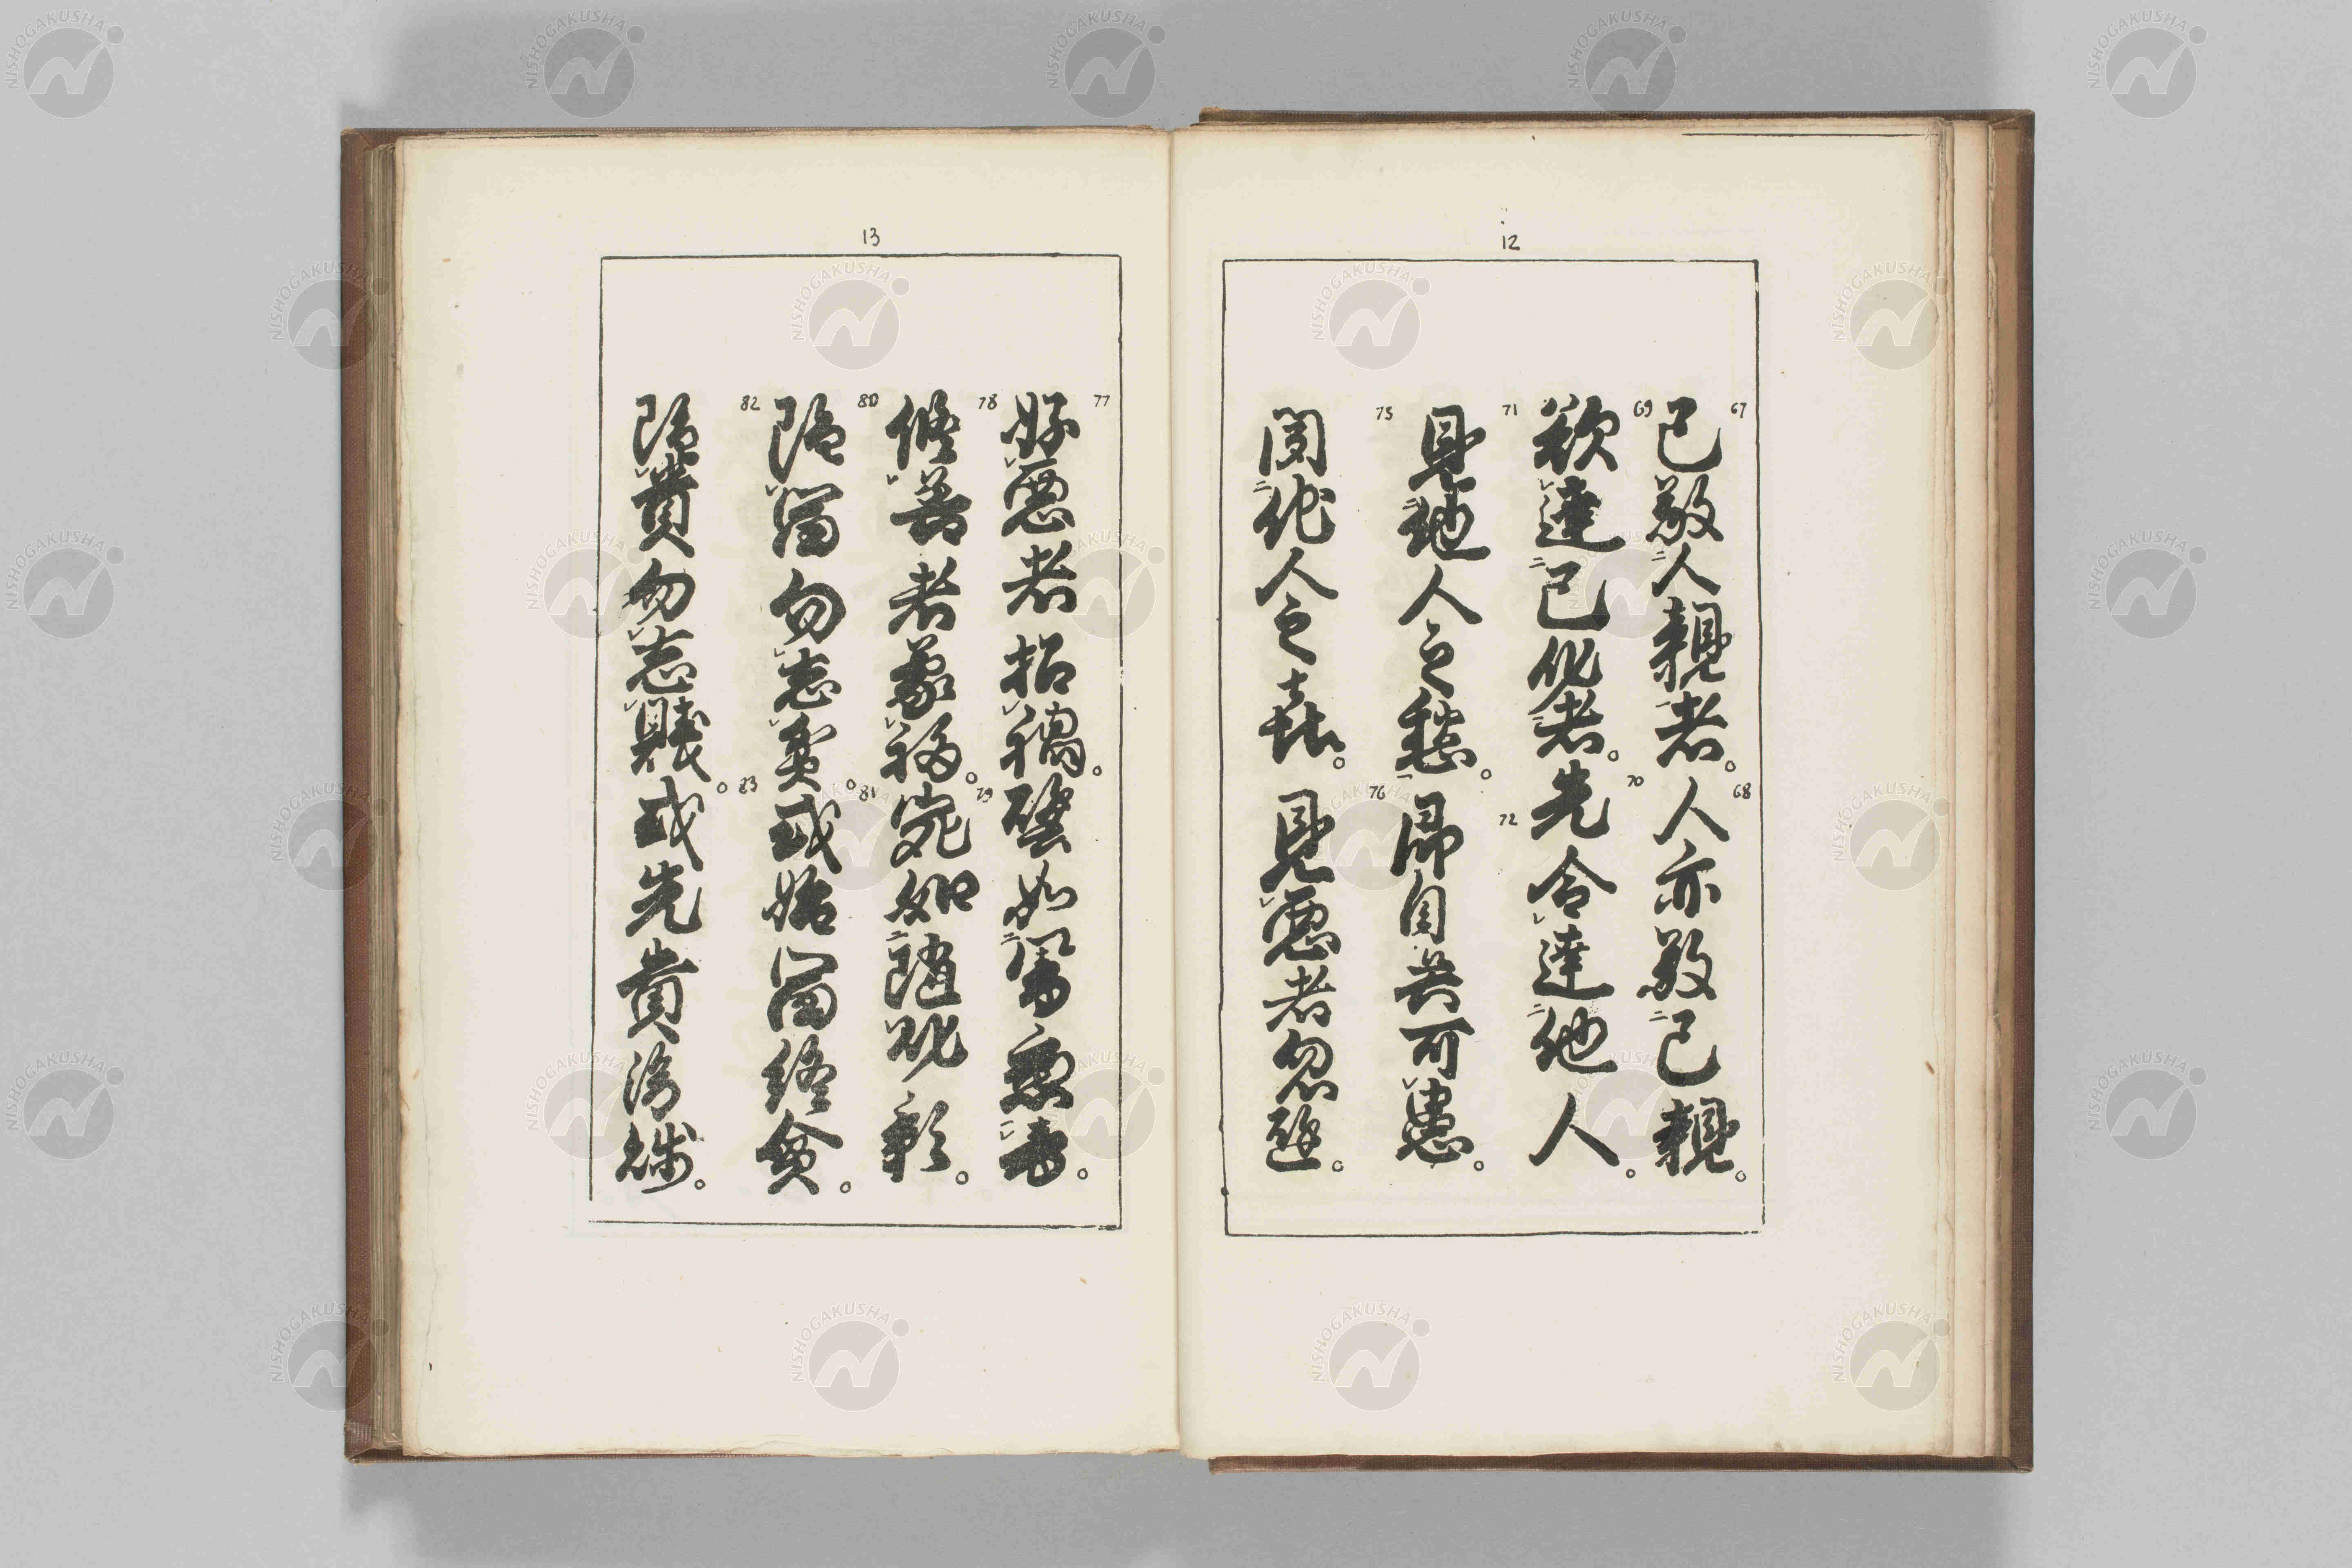 12
67 己敬人親者。68 人亦敬己親。
69 欲達己身者。70 先令達他人。
71 見他人之愁。72 即自共可患。
75 聞他人之喜。76 見悪者忽避。
13
77 好悪者招禍。譬如響應音。
78 修善者蒙福。79 宛如随身影。
80 雖冨勿忘貧。81 或始冨終貧。
82 雖貴勿忘賤。83 或先貴後賤。
NISHOGAKUSHA